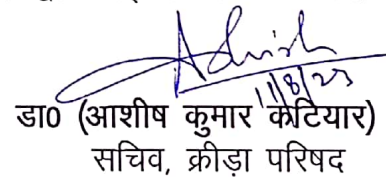 Ashish
11/8/23
डा0 (आशीष कुमार कटियार)
सचिव, क्रीड़ा परिषद